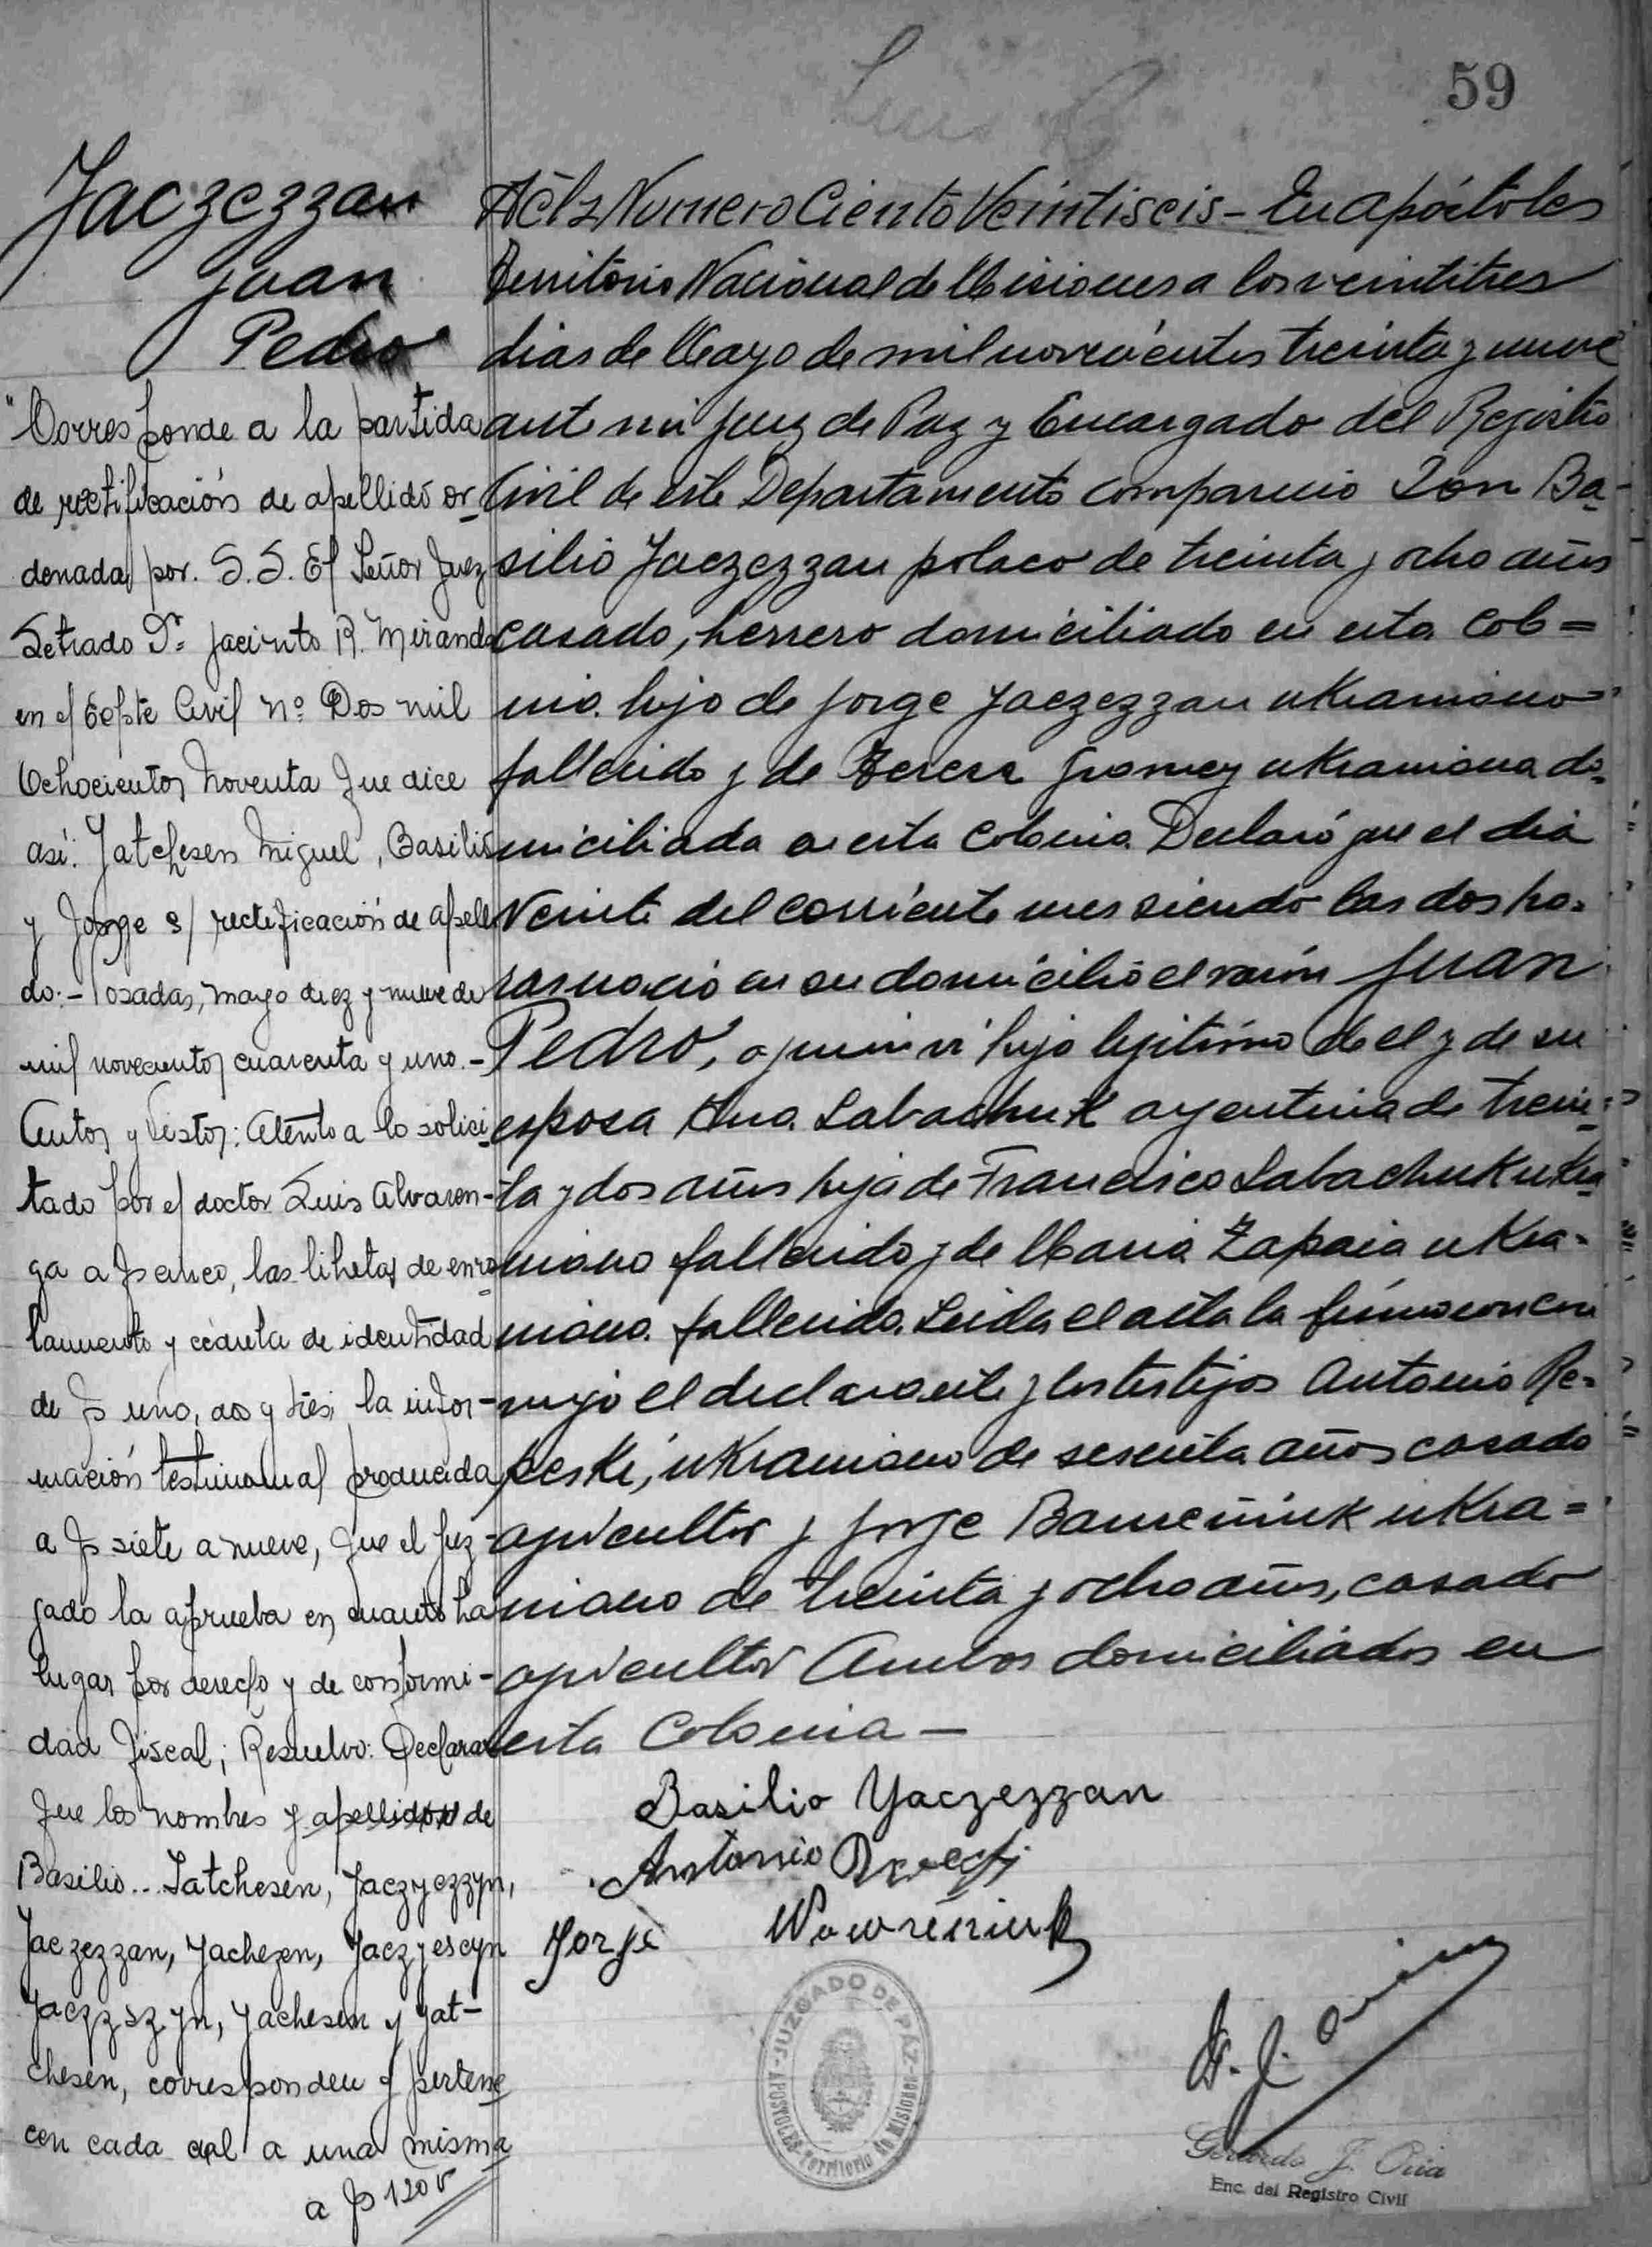 59
Jaczezzan
Juan
Pedro
"Corresponde a la partida
de rectificación de apellido or-
denada por. S. S. El Señor Juez
Letrado Dr. Jacinto R. Miranda
en el Expte Civil nº Dos mil
Ochocientos Noventa que dice
así: Jatchesen Miguel, Basilio
y Jorge s/ rectificación de apelli
do.- Posadas, mayo diez y nueve de
mil novecientos cuarenta y uno.-
Autos y Vistos: Atento a lo solici-
tado por el doctor Luis Alvaren-
ga a fs cinco, las libretas de enro-
lamiento y cédula de identidad
de fs uno, dos y tres; la infor-
mación testimonial producida
a fs siete a nueve, que el juz-
gado la aprueba en cuanto ha
lugar por derecho y de conformi-
dad fiscal; Resuelvo: Declarar
que los nombres y apellidos de
Basilio.. Jatchesen, Jaczyezzyn,
Jaczezzan, Yachezen, Jaczyescyn
Jaczzszyn, Yachesen y Yat-
chesen, corresponden y pertene
cen cada cual a una misma
a fs 120 v
Acta Numero Ciento Veintiseis - En apóstoles
Territorio Nacional de Misiones a los veintitres
dias de Mayo de mil novecientos treinta y nueve
ante mi Juez de Paz y Encargado del Registro
Civil de este Departamento comparecio Don Ba-
silio Jaczezzan polaco de treinta y ocho años
casado, herrero domiciliado en esta Colo=
nia. hijo de Jorge Jaczezzan ukraniano
fallecido y de Teresa Gromey ukraniana do-
miciliada en esta Colonia. Declaró que el dia
Veinte del corriente mes siendo las dos ho-
ras nació en su domicilio el varón Juan
Pedro, a quien vi hijo legitimo de el y de su
esposa Ana Labachuk argentina de trein-
ta y dos años hija de Francisco Labachuk ukra
niano fallecido y de Maria Zapaia ukra-
niana. fallecida. Leida el acta la firmaron con
migo el declarante y los testigos Antonio Re-
peski, ukraniano de sesenta años casado
agricultor y Jorge Baureñiuk ukra=
niano de treinta y ocho años, casado
agricultor Ambos domiciliados en
esta Colonia -
Basilio Yaczezzan
Antonio
Jorje Wowreniuk
JUZGADO DE PAZ
APOSTOLES Territorio de Misiones
Gerardo J. Oria
Enc. del Registro Civil